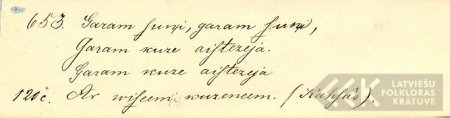 653. Garam suņi, garam suņi,
Garam kuze aistezeja.
Garam kuze aistezeja
120c. Ar wiseem kuzeneem. (Kuhsās).
LATVIEŠU
FOLKLORAS
KRĀTUVE